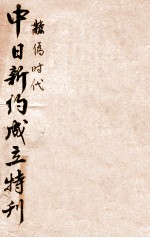 敵偽时代
中日新约成立特刊